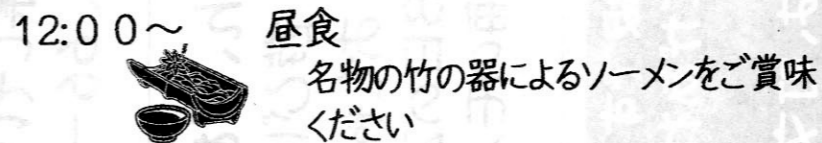 12:00～ 昼食
名物の竹の器によるソーメンをご賞味
ください